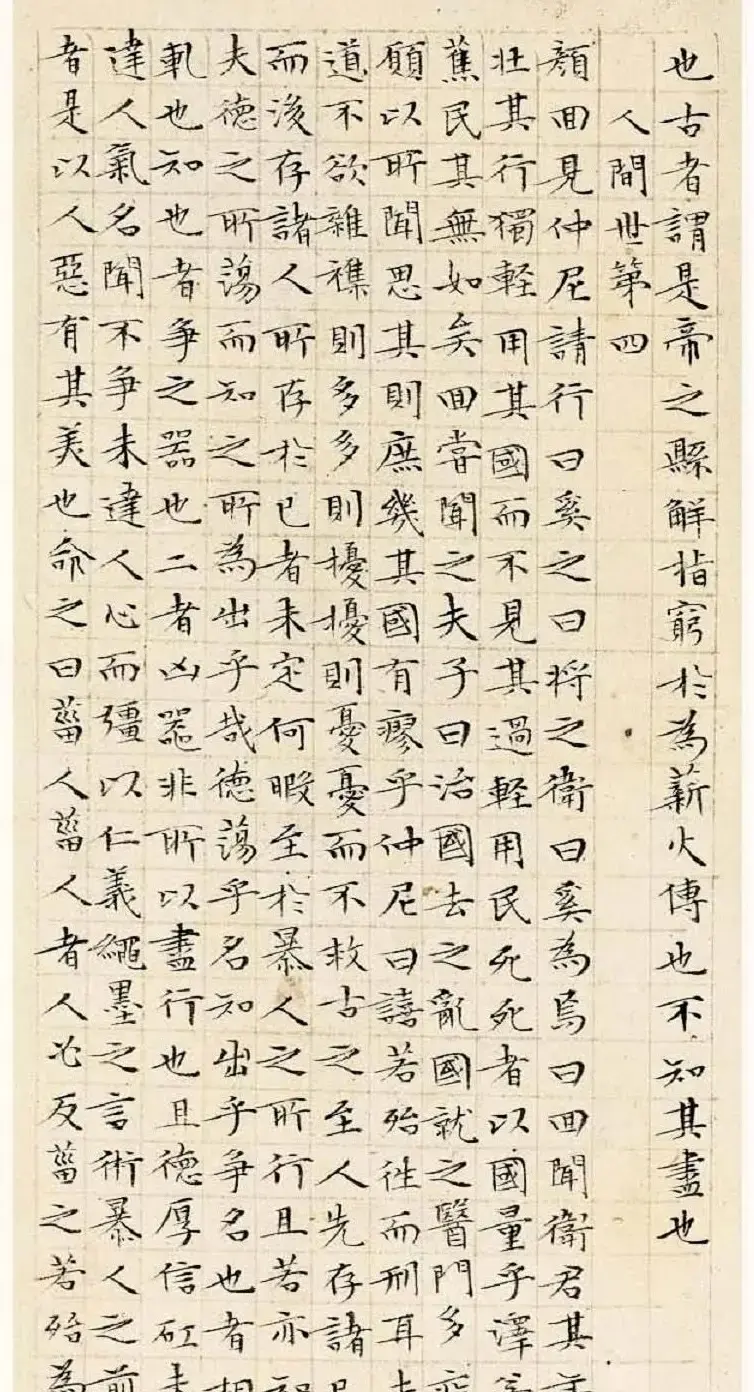 也古者謂是帝之縣解指窮於為薪火傳也不知其盡也
人間世第四
顏回見仲尼請行曰奚之曰將之衛曰奚為焉曰回聞衛君其年
壯其行獨輕用其國而不見其過輕用民死死者以國量乎澤
蕉民其無如矣回嘗聞之夫子曰治國去之亂國就之醫門多
願以所聞思其則庶幾其國有瘳乎仲尼曰譆若殆往而刑耳夫
道不欲雜雜則多多則擾擾則憂憂而不救古之至人先存諸
而後存諸人所存於己者未定何暇至於暴人之所行且若亦
夫德之所蕩而知之所為出乎哉德蕩乎名知出乎爭名也者相
軋也知也者爭之器也二者凶器非所以盡行也且德厚信矼未
達人氣名聞不爭未達人心而彊以仁義繩墨之言術暴人之前
者是以人惡有其美也命之曰菑人菑人者人必反菑之若殆為